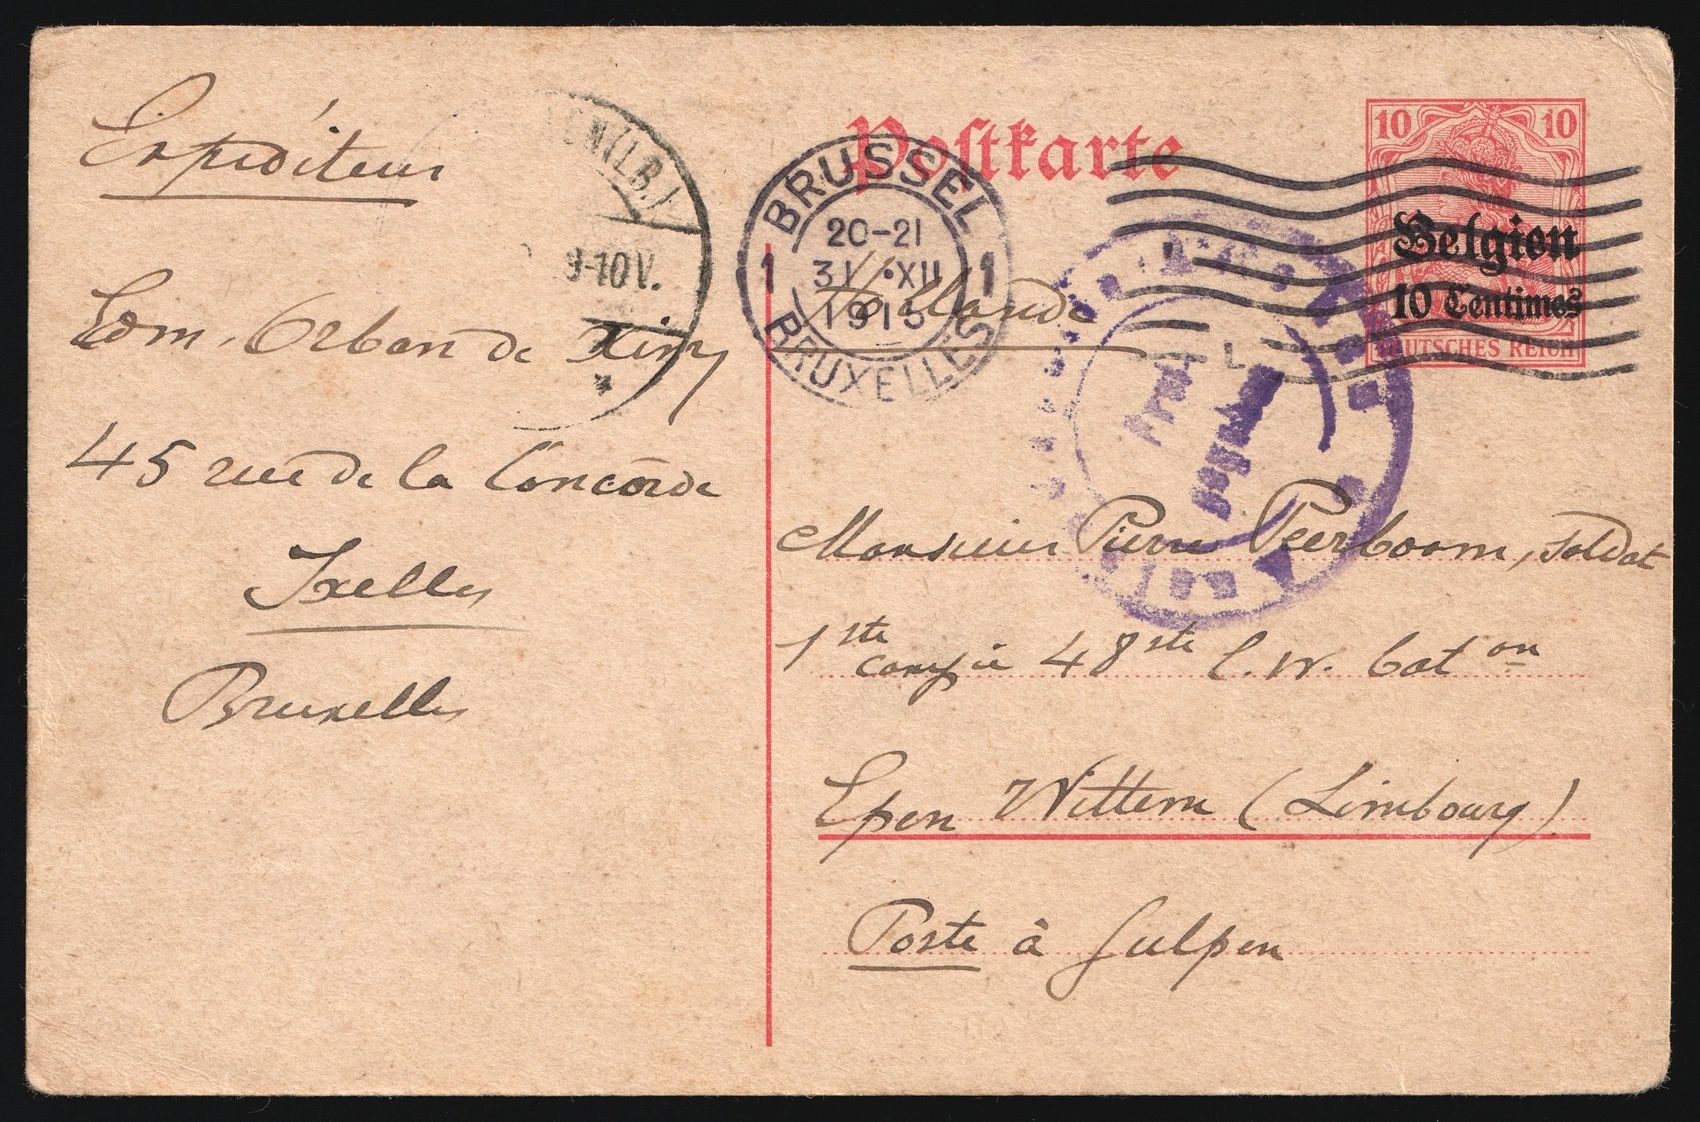 Expéditeur
Edm. Orban de Xivry
45 rue de la Concorde
Ixelles
Bruxelles
EN(LB.)
9-10V.
Postkarte
BRUSSEL
20-21
1 31 XII 1
1915
BRUXELLES
10 10
Belgien
10 Centimes
DEUTSCHES REICH
Hollande
Monsieur Pierre Peerboom, soldat
1ste compie 48ste L.W. bat on
Epen Wittem (Limbourg)
Poste à Gulpen